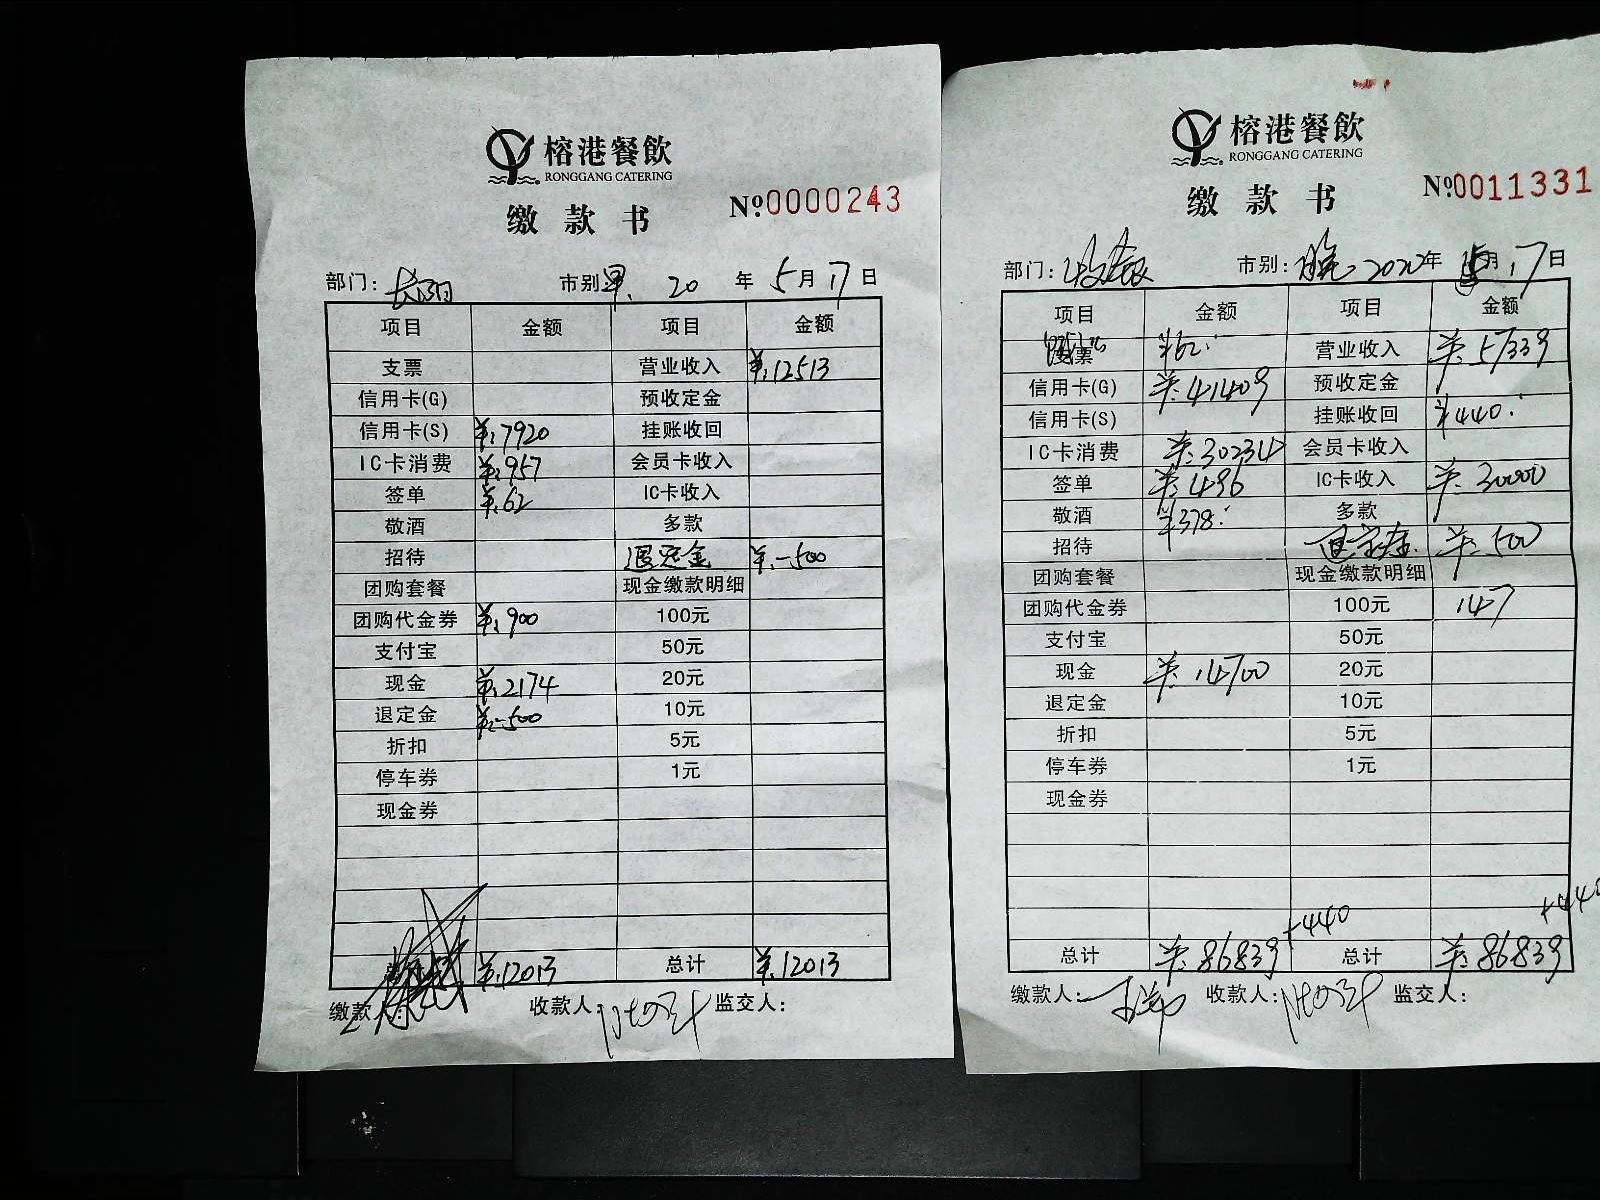 榕港餐飲
RONGGANG CATERING
缴款书
№0000243
部门: 市别 早 20 年 5 月 17 日
项目 金额 项目 金额
支票 营业收入 ¥:12513
信用卡(G) 预收定金
信用卡(S) ¥:7920 挂账收回
IC卡消费 ¥:957 会员卡收入
签单 ¥:62 IC卡收入
敬酒 多款
招待 退定金 ¥:-500
团购套餐 现金缴款明细
团购代金券 ¥:900 100元
支付宝 50元
现金 ¥:2174 20元
退定金 ¥:-500 10元
折扣 5元
停车券 1元
现金券
¥:12013 总计 ¥:12013
缴款人: 收款人: 监交人:
榕港餐飲
RONGGANG CATERING
缴款书
№0011331
部门: 收银 市别: 晚 2020年 5月 17日
项目 金额 项目 金额
¥62: 营业收入 ¥:57339
信用卡(G) ¥:41409 预收定金
信用卡(S) 挂账收回 ¥440:
IC卡消费 ¥:30234 会员卡收入
签单 ¥:496 IC卡收入 ¥:30000
敬酒 ¥378: 多款
招待 ¥:500
团购套餐 现金缴款明细
团购代金券 100元 147
支付宝 50元
现金 ¥:14700 20元
退定金 10元
折扣 5元
停车券 1元
现金券
+440 +440
总计 ¥:86839 总计 ¥:86839
缴款人: 收款人: 监交人: